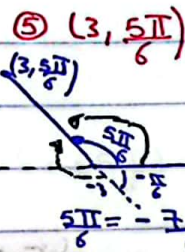 ⑤ (3, 5π/6)
(3, 5π/6)
5π/6
-3 -π/6
5π/6 = - 7